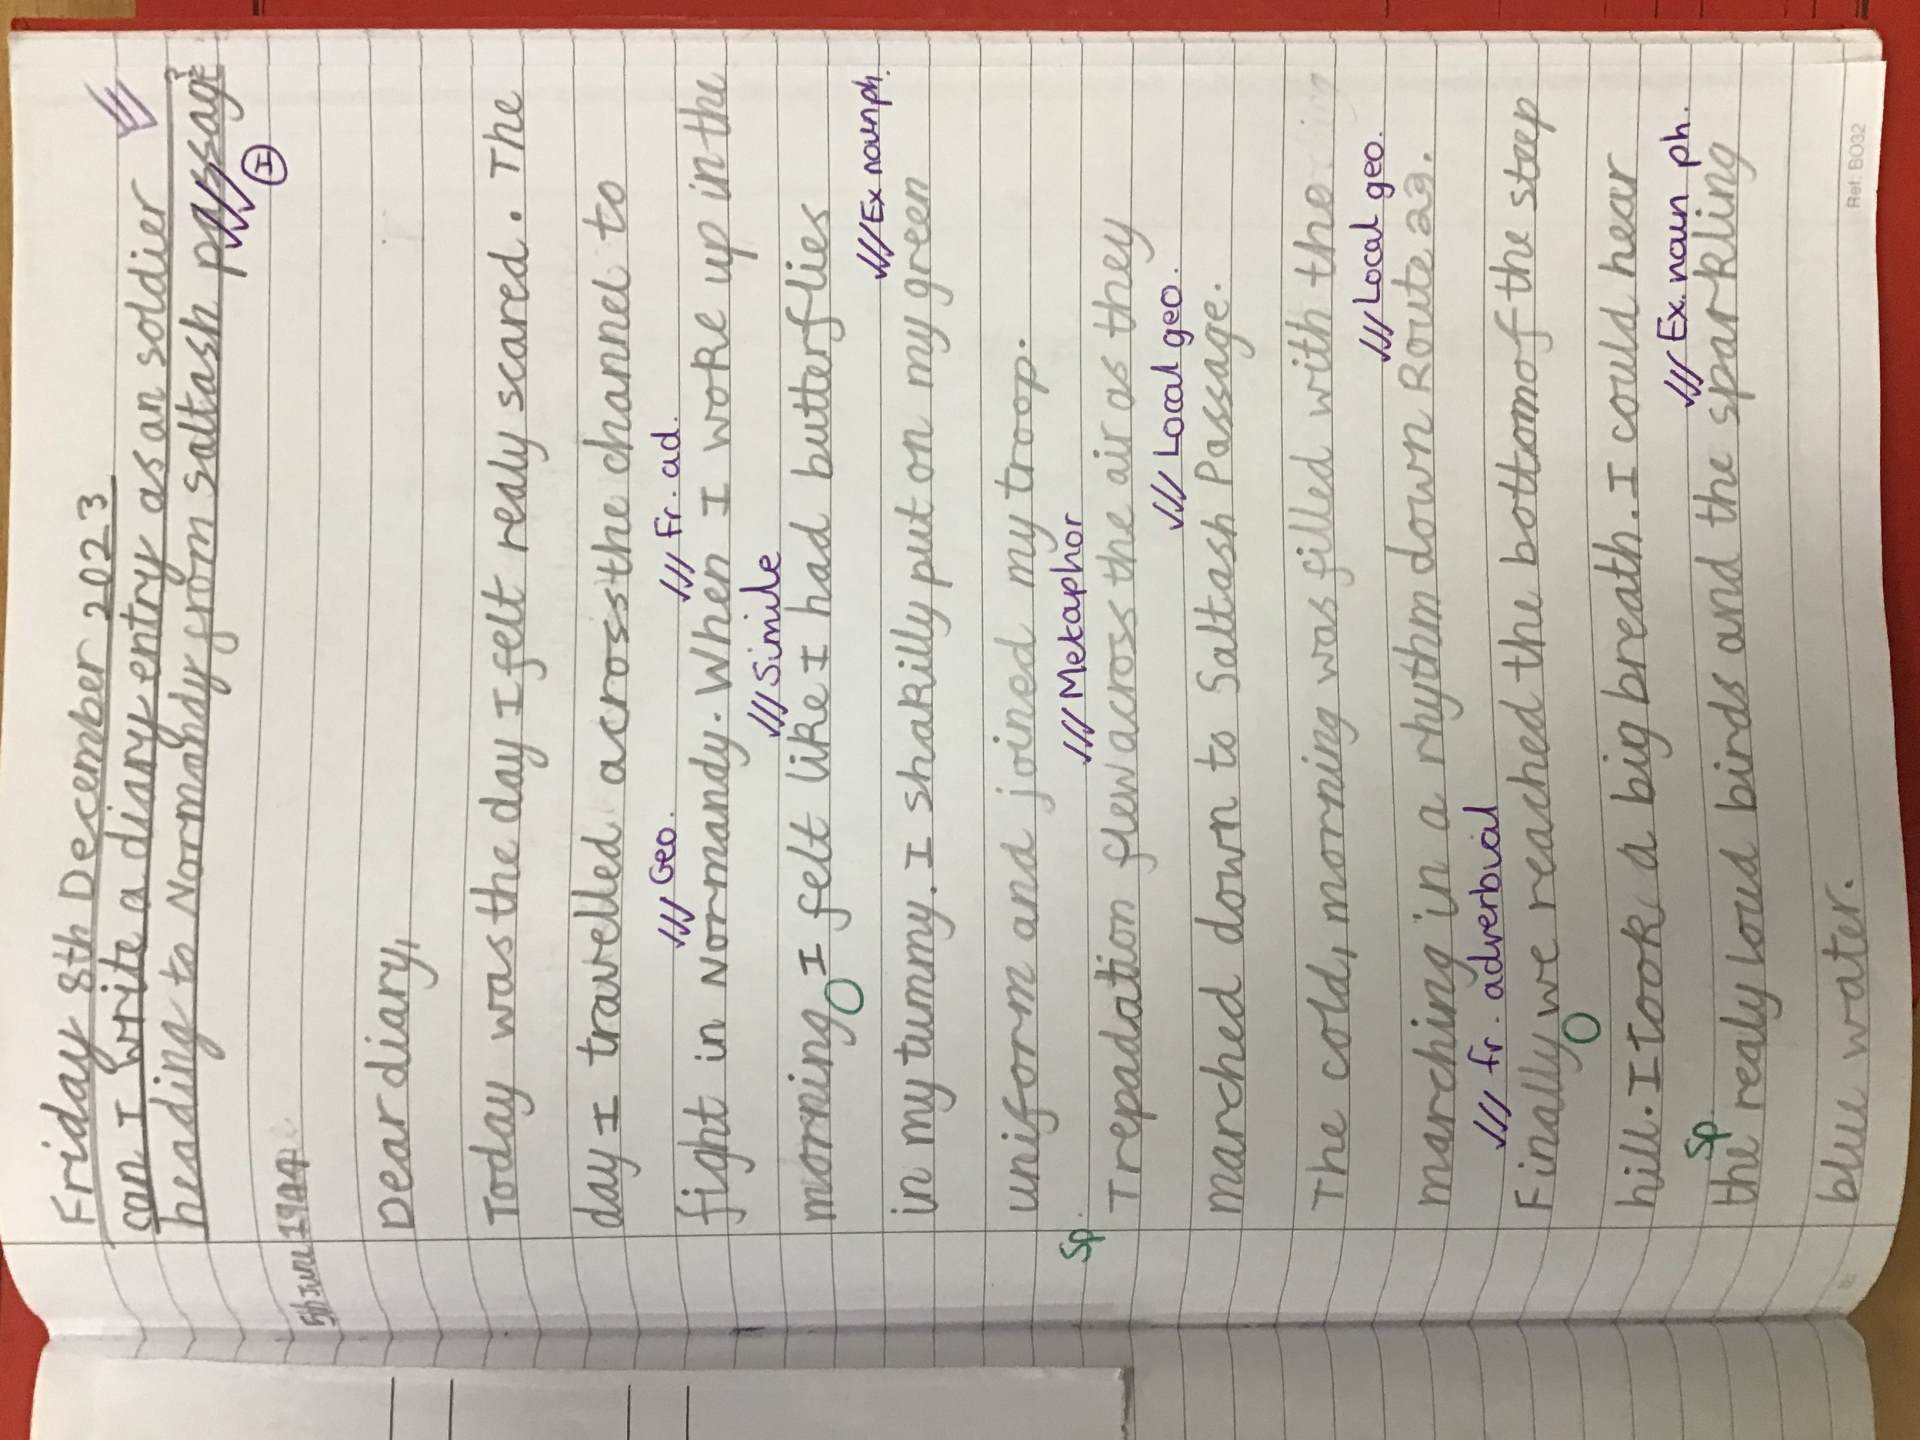 Friday 8th December 2023
can I write a diary entry as an soldier
heading to Normandy from saltash passage?
I
5th June 1944
Dear diary,
Today was the day I felt realy scared. The
day I travelled across the channel to
/// Geo. /// Fr. ad.
fight in Normandy. When I woke up in the
/// Simile
morning I felt like I had butterflies
/// Ex noun ph.
in my tummy. I shakilly put on my green
uniform and joined my troop.
Sp. /// Metaphor
Trepadation flew across the air as they
/// Local geo.
marched down to Saltash Passage.
The cold, morning was filled with the
/// Local geo.
marching in a rhythm down Route 23.
/// fr. adverbial
Finally we reached the bottom of the steep
hill. I took a big breath. I could hear
Sp. /// Ex. noun ph.
the realy loud birds and the sparkling
blue water.
Ref: BO32